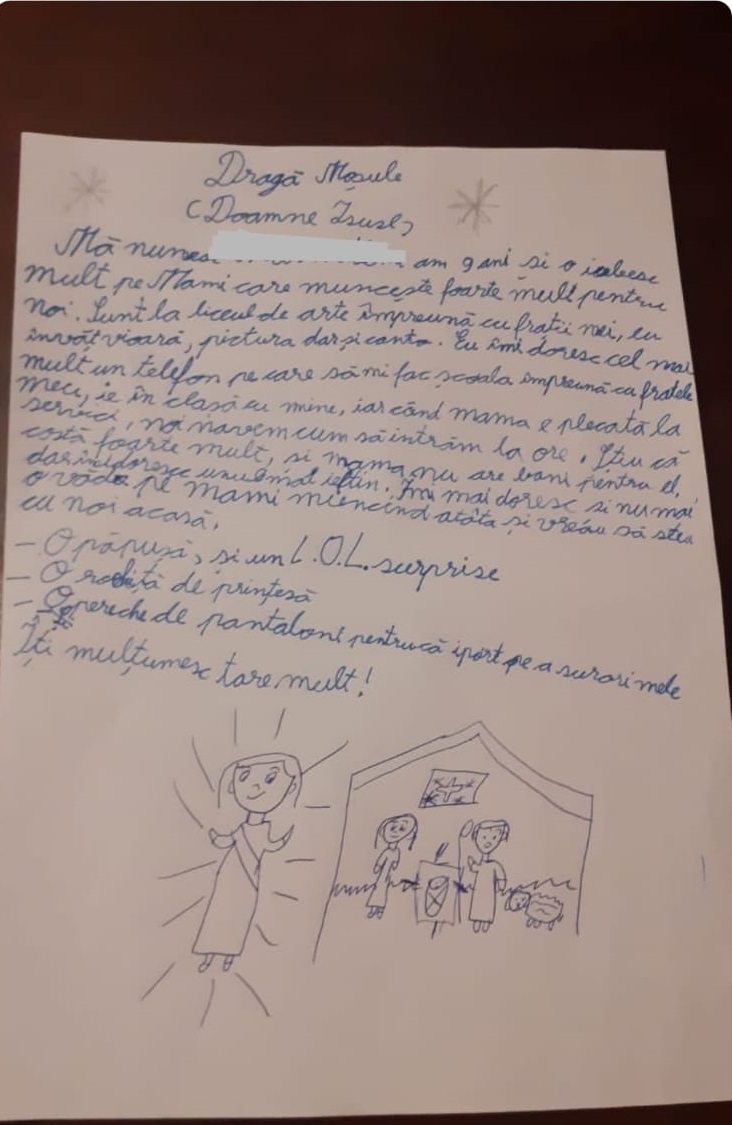 Dragă Moșule
(Doamne Isuse)
Mă numesc am 9 ani si o iubesc
mult pe Mami care muncește foarte mult pentru
noi. Sunt la liceul de arte împreună cu frații mei, eu
învăt vioară, pictura dar și canto. Eu îmi doresc cel mai
mult un telefon pe care sămi fac școala împreună cu fratele
meu, ie în clasă cu mine, iar când mama e plecată la
servici, noi navem cum să intrăm la ore. Știu că
costă foarte mult, si mama nu are bani pentru el,
dar îmi doresc unul mai iftin. Îmi mai doresc si nu mai
o văd pe Mami muncind atâta și vreau să stea
cu noi acasă.
- O păpușă, și un L.O.L. surprise
- O rochiță de prințesă
- O pereche de pantaloni pentrucă iport pe a surori mele
Îți mulțumesc tare mult!